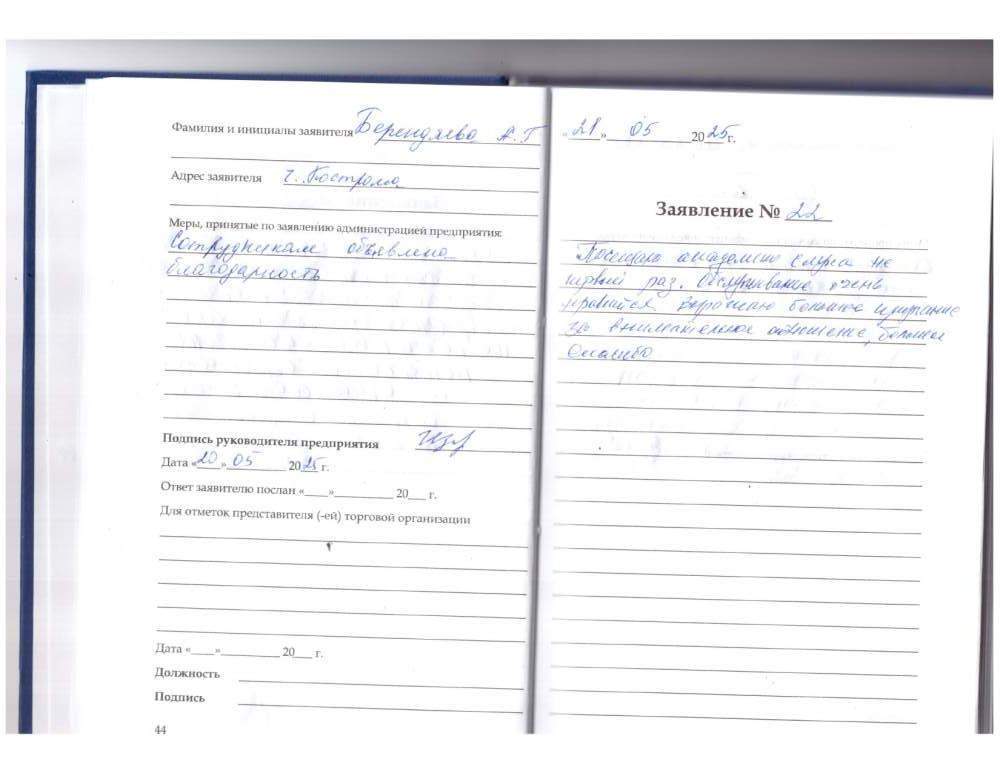 Фамилия и инициалы заявителя Берендяева А.Г
Адрес заявителя г. Кострома
Меры, принятые по заявлению администрацией предприятия:
Сотрудникам объявлена
благодарность
Подпись руководителя предприятия
Дата «20» 05 2025 г.
Ответ заявителю послан «___»__________ 20___ г.
Для отметок представителя (-ей) торговой организации
Дата «____»__________ 20___ г.
Должность
Подпись
44
«21» 05 2025 г.
Заявление № 22
Посещаю академию не
первый раз. Обслуживание очень
нравится. Выражаю большое
за внимательное отношение, большое
спасибо